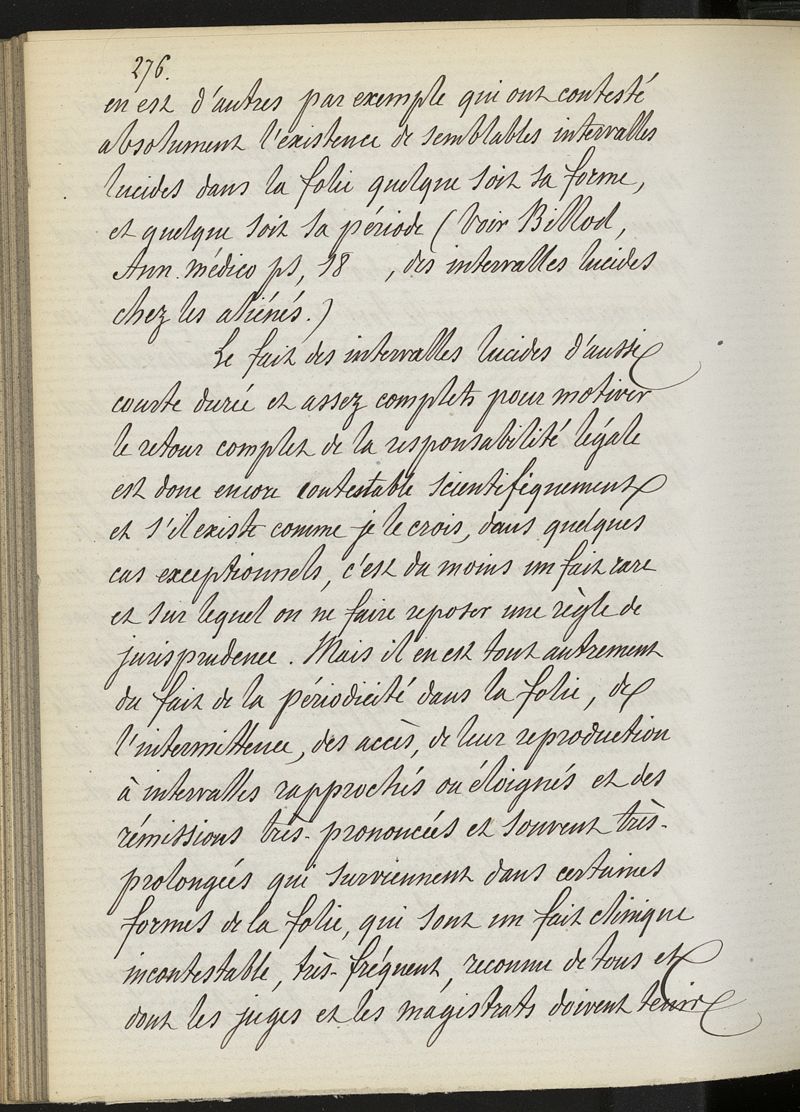 276.
en est d'autres par exemple qui ont contesté
absolument l'existence de semblables intervalles
lucides dans la folie quelque soit sa forme,
et quelque soit sa période (Voir Billod,
Ann. médico ps, 18 , des intervalles lucides
chez les aliénés.)
Le fait des intervalles lucides d'aussi
courte durée et assez complets pour motiver
le retour complet de la responsabilité légale
est donc encore contestable scientifiquement
et s'il existe comme je le crois, dans quelques
cas exceptionnels, c'est du moins un fait rare
et sur lequel on ne faire reposer une règle de
jurisprudence. Mais il en est tout autrement
du fait de la périodicité dans la folie, de
l'intermittence, des accès, de leur reproduction
à intervalles rapprochés ou éloignés et des
rémissions très-prononcées et souvent très-
prolongées qui surviennent dans certaines
formes de la folie, qui sont un fait clinique
incontestable, très-fréquent, reconnu de tous et
dont les juges et les magistrats doivent tenir